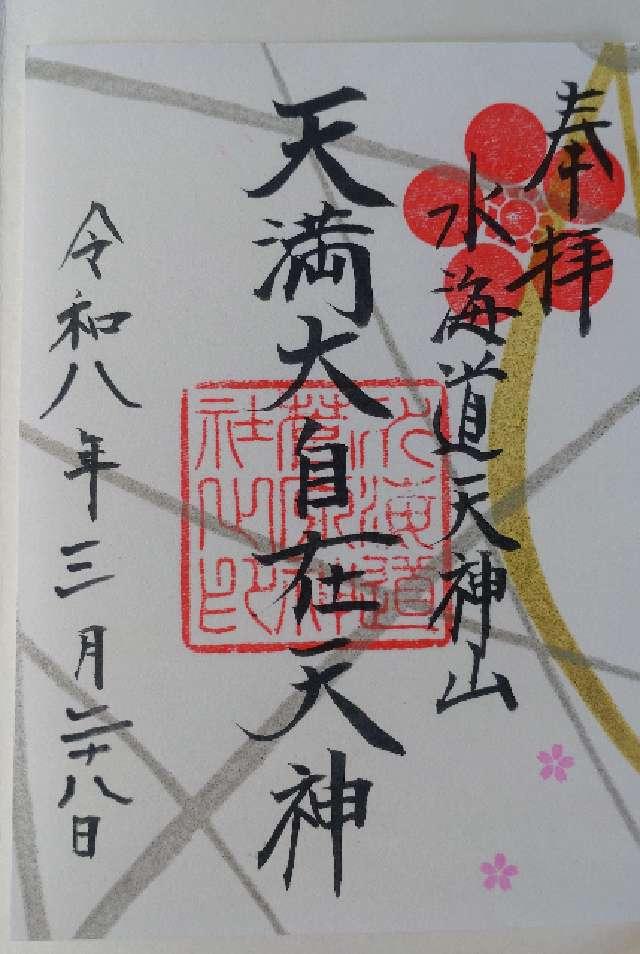 奉拝
水海道天神山
天満大自在天神
令和八年三月二十八日
水海道菅原神社之印